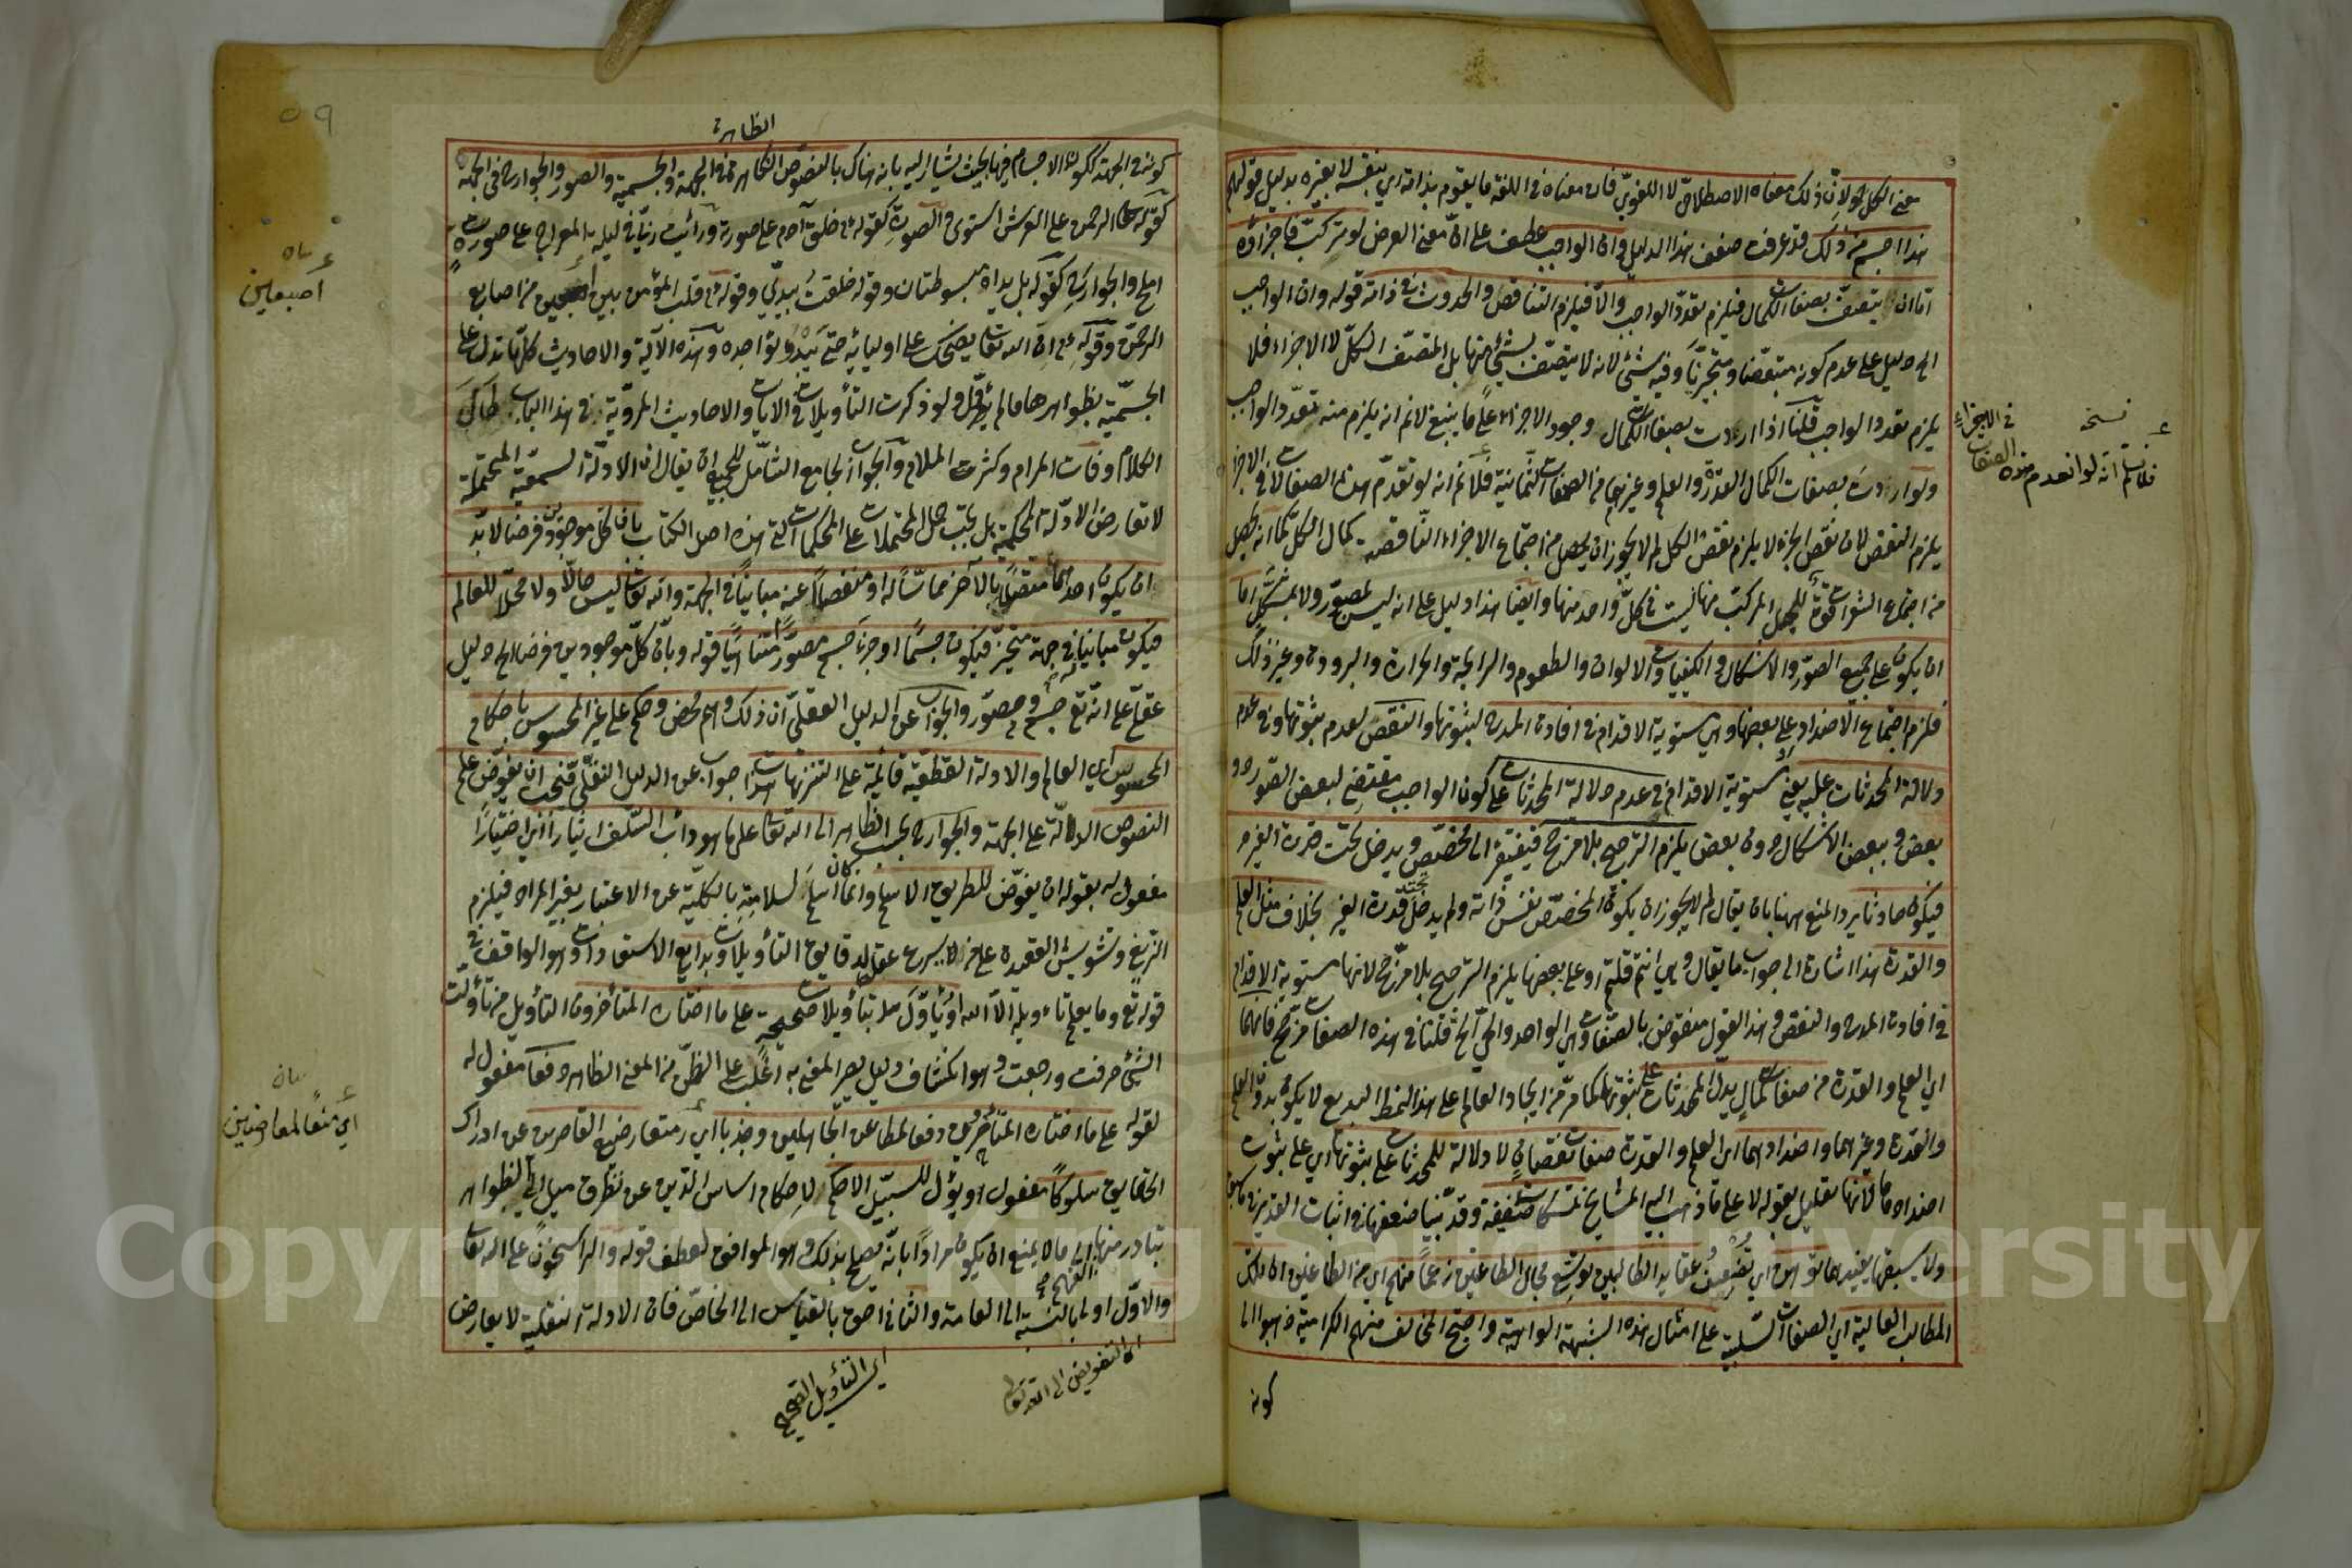 معنى الكل ولان ذلك معناه الاصطلاحي لا اللغوي فان معناه في اللغة ما يقوم بذاته اي بنفسه لا بغيره بدليل قولهم
هذا اجسم من ذلك قد عرفت ضعف هذا الدليل وان الواجب عطف على ان معنى العرض لو تركب فاجزاؤه
اما ان يتصف بصفات الكمال فيلزم تعدد الواجب والا فيلزم التناقص والحدوث في ذاته قوله وان الواجب
الخ دليل على عدم كونه متبعضا ومتجزيا وفيه شئ لانه لا يتصف بشئ منها بل المتصف الكل لا الاجزاء فلا
يلزم تعدد الواجب قلنا اذا اردت بصفات الكمال وجود الاجزاء على ما ينبغي لانم انه يلزم منه تعدد الواجب
ولو اردت بصفات الكمال القدرة والعلم وغيرهما من الصفات الثمانية فلانم انه لو تقدم هذه الصفات في الاجزاء
يلزم النقص لان نقص الجزء لا يلزم نقص الكل لم لا يجوز ان يحصل من اجتماع الاجزاء الناقصة كمال الكل كما انه يحصل
من اجتماع الشعرات قوة للحبل المركب منها ليست في كل واحد منها وايضا هذا دليل على انه ليس بمصور ولا بمشكل اما
ان يكون على جميع الصور والاشكال والكيفيات والالوان والطعوم والرايحة والحرارة والبرودة وغير ذلك
فلزم اجتماع الاضداد او على بعضها وهي مستوية الاقدام في افادة المدح لثبوتها والنقص لعدم ثبوتها وفي عدم
دلالة المحدثات عليه يعني مستوية الاقدام في عدم دلالة المحدثات على كون الواجب مقتضي لبعض الصور دون
بعض وبعض الاشكال دون بعض يلزم الترجيح بلا مرجح فيفتقر الى مخصص ويدخل تحت قدرة الغير
فيكون حادثا يرد المنع ههنا بان يقال لم لا يجوز ان يكون المخصص نفس ذاته ولم يدخل تحت قدرة الغير بخلاف مثل العلم
والقدرة هذا اشارة الى جواب ما يقال وهي انتم قلتم او على بعضها يلزم الترجيح بلا مرجح لانها مستوية الاقدام
في افادة المدح والنقص وهذا القول منقوض بالصفات وهي الواحد والحي الخ قلنا في هذه الصفات مرجح فانهما
اي العلم والقدرة من صفات كمال يدل المحدثات على ثبوتها كما مر من ايجاد العالم على هذا النمط البديع لا يكون بدون العلم
والقدرة وغيرهما واضدادهما اي العلم والقدرة صفات نقصان لا دلالة للمحدثات على ثبوتها اي على ثبوت
اضدادهما لانها تعليل بقوله لا على ما ذهب اليه المشايخ تمسكات ضعيفة وقد بينا ضعفها في اثبات القدير
ولا يسبقها يفيد ما توهن اي تضعف عقايد الطالبين توسع مجال الطاعنين زعما منهم اي من الطاعنين ان تلك
المطالب العالية اي الصفات السلبية على امثال هذه الشبهة الواهية واحتج المخالف منهم الكرامية ذهبوا الى
كونه
نسخه
فلانسلم انه لو انعدم هذه الصفات
في الاجزاء
٥٩
الظاهرة
كونه في الجهة ككون الاجسام فيها بحيث يشار اليه بانه هناك بالنصوص الظاهرة في الجهة والجسمية والصور والجوارح في الجهة
كقوله تعالى الرحمن على العرش استوى والصورة كقوله ان خلق آدم على صورته ورأيت ربي في ليلة المعراج على صورة
املح والجوارح كقوله بل يداه مبسوطتان وقوله خلقت بيدي وقوله قلب المؤمن بين اصبعين من اصابع
الرحمن وقوله ان الله تعالى يضحك على اوليائه حتى تبدو نواجذه وهذه الآية والاحاديث كلها تدل على
الجسمية بظواهرها مالم يؤول ولو ذكرت التأويلات في الايات والاحاديث المروية في هذا الباب طال
الكلام وفات المرام وكثرت الملام والجواب الجامع الشامل للجميع ان يقال ان الادلة السمعية المحتملة
لا تعارض الادلة المحكمة بل يجب حمل المحتملات على المحكمات التي هذه اصل الكتاب بان كل موجودين فرضا لا بد
ان يكون احدهما متصلا بالآخر مماسا له او منفصلا عنه مباينا في الجهة وانه تعالى ليس حالا ولا محلا للعالم
فيكون مباينا في جهة متحيز فيكون جسما او جزء جسم مصورا متناهيا قوله وبان كل موجودين فرضا الخ دليل
عقلي على انه تع جسم ومصور والجواب عن الدليل العقلي ان ذلك وهم محض وحكم على غير المحسوس باحكام
المحسوس اي العالم والادلة القطعية قائمة على التنزيهات هذا جواب عن الدليل النقلي فيجب ان يفوض علم
النصوص الدالة على الجهة والجوارح بحسب الظاهر الى الله تعالى على ما هو دأب السلف ايثارا اي اختيارا
مفعول له بقوله ان يفوض للطريق الاسلم وانما كان اسلم لسلامته بالكلية عن الاعتبار بغير المراد فيلزم
الزيغ وتشويش العقيدة على من لا يسرع عقله دقايق التأويلات وبدايع الاستعارات وهو الواقف في
قوله تع وما يعلم تأويله الا الله او يأول بتأويلات صحيحة على ما اختاره المتأخرون التأويل من تأولت
الشئ صرفت ورجعت وهو انكشاف دليل يصير المعنى به اغلب على الظن من المعنى الظاهر دفعا مفعول له
لقوله على ما اختاره المتأخرون دفعا لمطاعن الجاهلين وجذبا اي لضبع القاصرين عن ادراك
الحقايق سلوكا مفعول او يؤول للسبيل الاحكم لاحكام اساس الدين عن تطرق ميل الى الظواهر
يتبادر منها الى ما لا يمنع ان يكون مرادا بانه يصلح بذلك وهو الموافق لعطف قوله والراسخون على الله تعالى
والاول اولى بالنسبة الى العامة والثاني احق بالقياس الى الخاص فان الادلة النقلية لا يعارض
الفهم صح
اي التفويض الى الله تعالى
اي التأويل الصحيح
اصبعين
بيان
اي منعا لمعارضين
Copyright © King Saud University